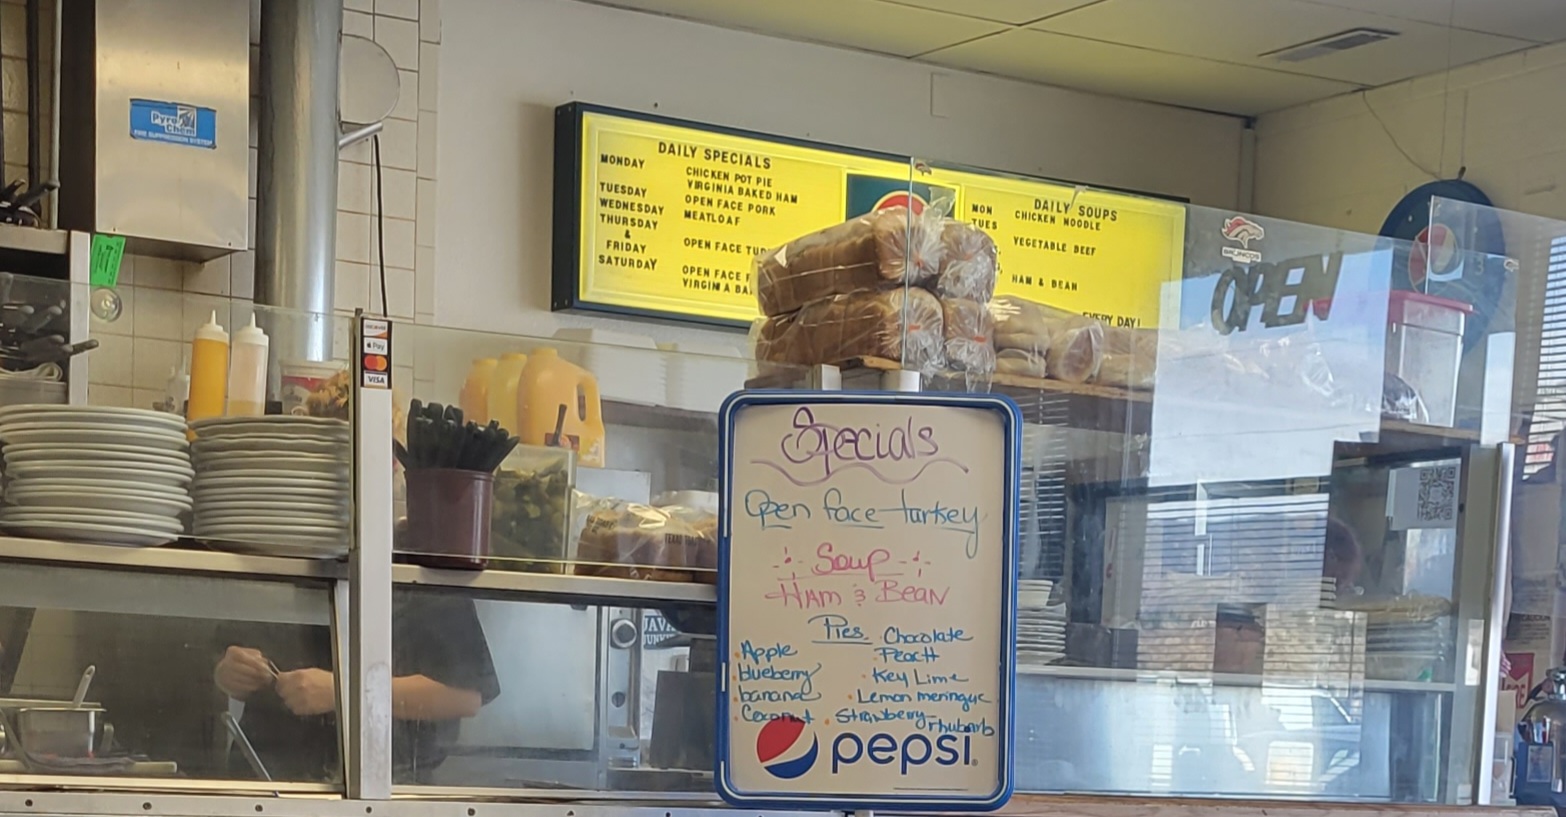 Pyro
Chem
FIRE SUPPRESSION SYSTEM
DAILY SPECIALS
MONDAY CHICKEN POT PIE
VIRGINIA BAKED HAM
TUESDAY OPEN FACE PORK
WEDNESDAY MEATLOAF
THURSDAY
&
FRIDAY OPEN FACE
SATURDAY OPEN FACE
VIRGINIA
DAILY SOUPS
MON CHICKEN NOODLE
TUES
VEGETABLE BEEF
HAM & BEAN
EVERY DAY!
BRONCOS
OPEN
Pay
VISA
JAVA
Specials
Open face turkey
Soup
HAM & BEAN
Pies
Apple
blueberry
banana
Coconut
Chocolate
Peach
Key Lime
Lemon meringue
Strawberry rhubarb
pepsi